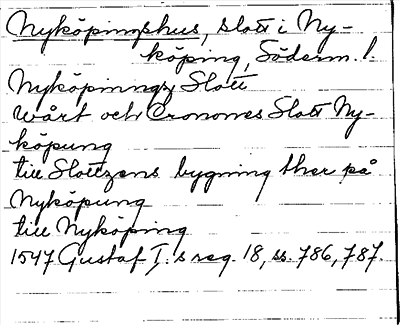 Nyköpingshus, slott i Ny-
köping, Söderm. l.
Nyköpinngz Slott
Wårt och Cronones Slott Ny-
köpung
till Slottzens bygning ther på
Nyköpung
till Nyköping
1547 Gustaf I:s reg. 18, ss. 786, 787.